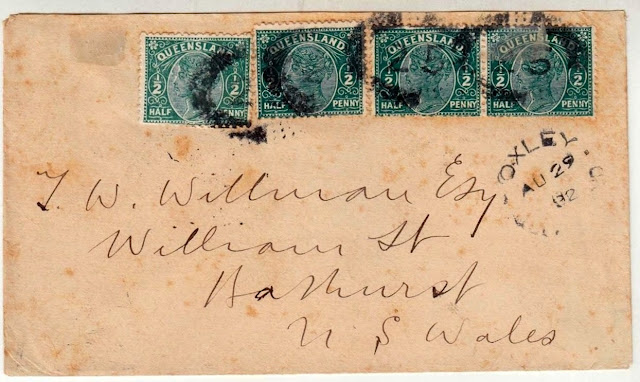 QUEENSLAND QUEENSLAND QUEENSLAND QUEENSLAND
1/2 1/2 1/2 1/2 1/2 1/2 1/2
HALF PENNY HALF PENNY HALF PENNY HALF PENNY
OXLEY
AU 29
92
T. W. Willman Esq
William St
Bathurst
N S Wales